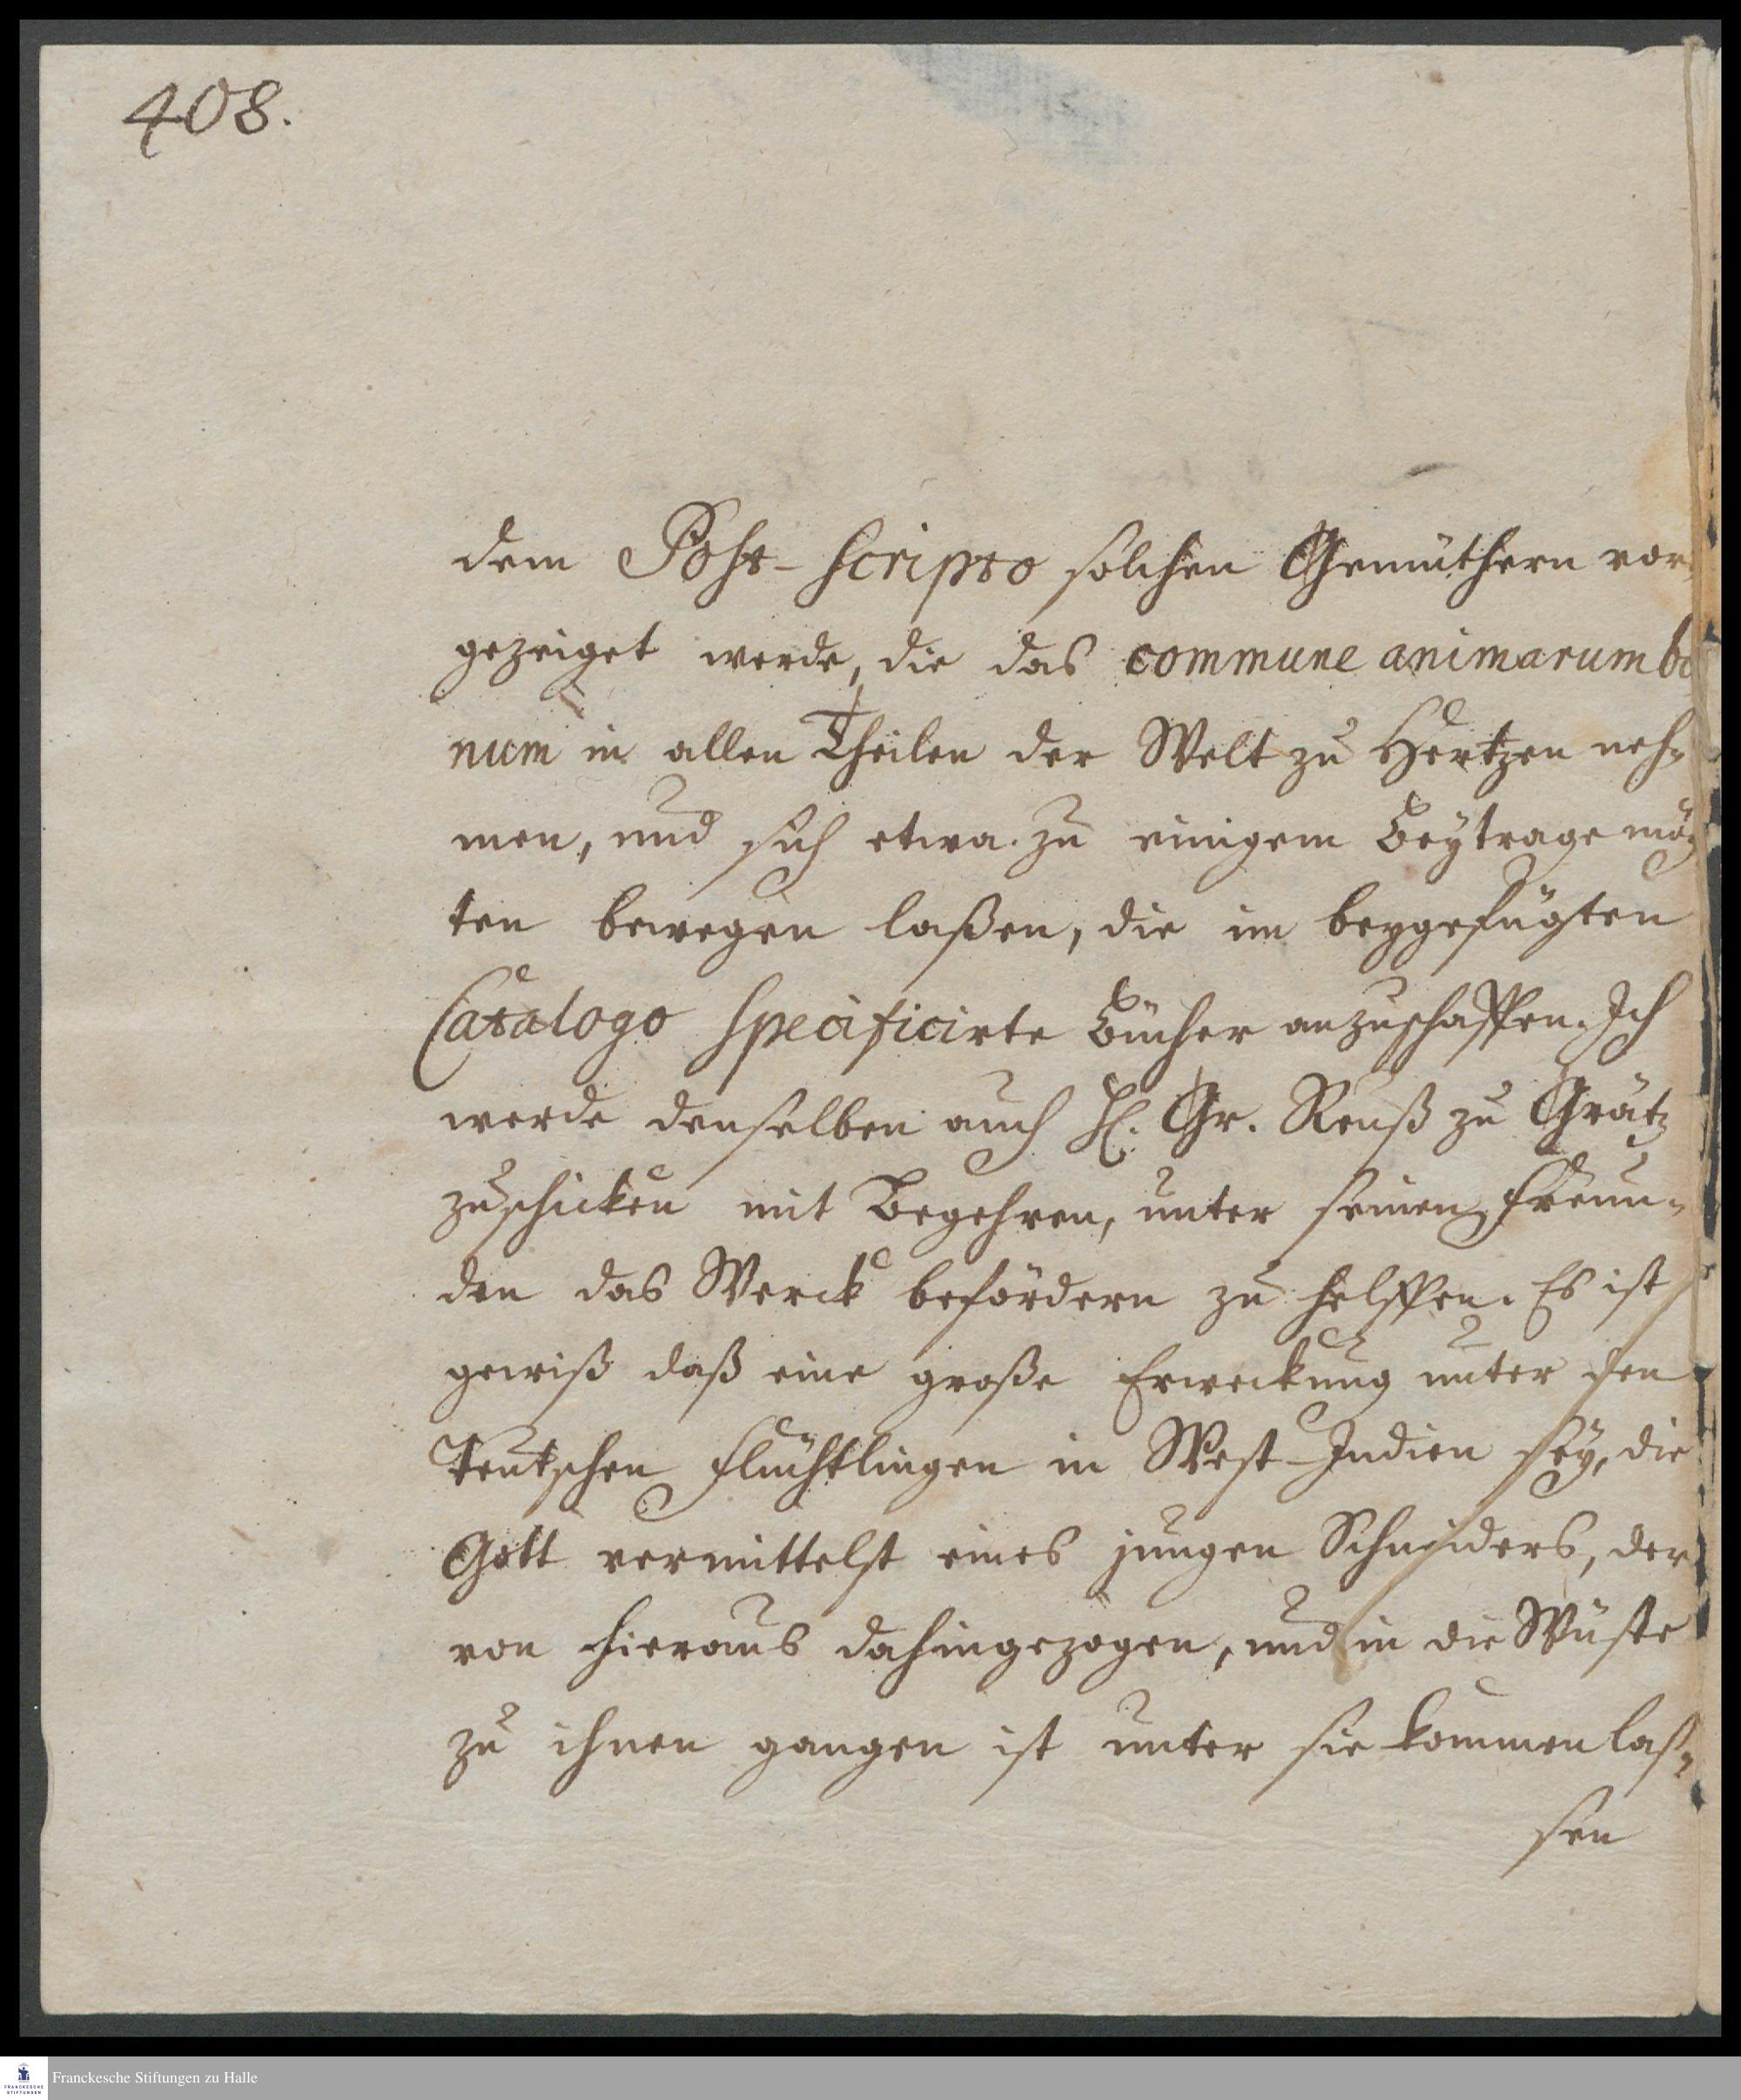 408.
dem Post-scripto solchen Gemüthern vor
gezeiget werde, die das commune animarum bo
num in allen Theilen der Welt zu Hertzen neh-
men, und sich etwa zu einigem Beytrage mög
ten bewegen laßen, die im beygefügten
Catalogo specificirte Bücher anzuschaffen. Ich
werde denselben auch H. Gr. Reuß zu Grätz
zuschicken mit Begehren, unter seinen Freun-
den das Werck befördern zu helffen. Es ist
gewiß daß eine große Erweckung unter den
Teutschen Flüchtlingen in West-Indien sey, die
Gott vermittelst eines jungen Schneiders, der
von hieraus dahingezogen, und in die Wüste
zu ihnen gangen ist unter sie kommen las-
sen
Franckesche Stiftungen zu Halle
FRANCKESCHE
STIFTUNGEN